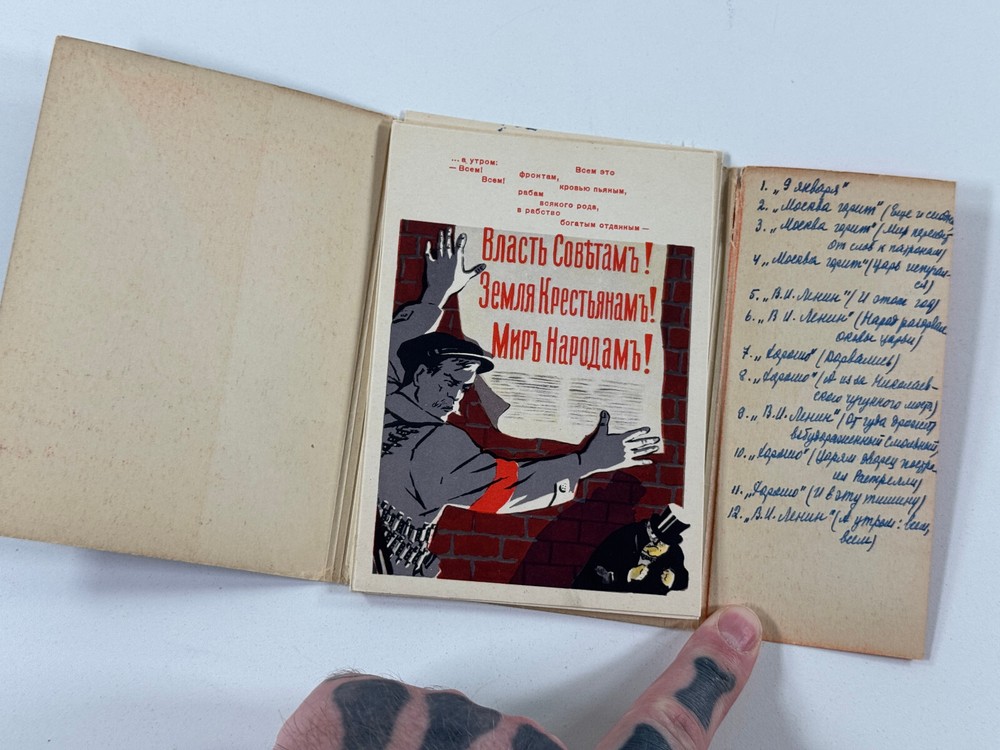 ... а утром:
— Всем!
Всем!
Всем это
фронтам,
кровью пьяным,
рабам
всякого рода,
в рабство
богатым отданным —
Власть Совѣтамъ!
Земля Крестьянамъ!
Миръ Народамъ!
1. „9 января"
2. „Москва горит" (Еще и
3. „Москва горит" (Мир
от слов к патронам)
4. „Москва горит" (Царь
ся)
5. „В.И. Ленин" (И этот год)
6. „В И. Ленин" (Народ
оковы царьи)
7. „Хорошо" (дорвались)
8. „Хорошо" (А из-за Николаев-
ского чугунного моста)
9. „В.И. Ленин" (От гуда дрожит
взбудораженный Смольный,
10. „Хорошо" (Царям дворец построи
ил Растрелли)
11. „Хорошо" (И в эту тишину)
12. „В.И. Ленин" (А утром: всем,
всем)